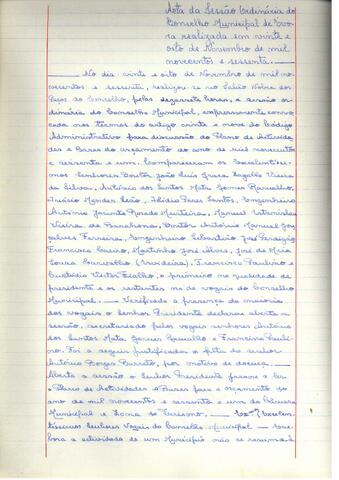 Acta da Sessão Ordinária do
Conselho Municipal de Évo-
ra realizada em vinte e
oito de Novembro de mil
novecentos e sessenta.
No dia vinte e oito de Novembro de mil no-
vecentos e sessenta, realizou-se no Salão Nobre dos
Paços do Concelho, pelas dezassete horas, a sessão or-
dinária do Conselho Municipal, expressamente convo-
cada nos termos do artigo vinte e nove do Código
Administrativo para discussão do Plano de Activida-
des e Bases do Orçamento do ano de mil novecentos
e sessenta e um. Compareceram os Excelentíssi-
mos Senhores Doutor João Luís Vieira
da Silva, António dos Santos Mata Garcia Ramalho,
Inácio Mendes Leão, Alídio Peres Santos, Engenheiro
António Jacinto Murteira, Manuel
Vieira de Barahona, Doutor António Manuel Gon-
çalves Ferreira, Engenheiro Sebastião José Perdigão
Francisco Martinho José Alves, José de
Carvalho Francisco Paulino e
Custódio Victor Fialho, o primeiro na qualidade de
presidente e os restantes na de vogais do Conselho
Municipal. — Verificada a presença da maioria
dos vogais o Senhor Presidente declarou aberta a
sessão, secretariado pelos vogais senhores António
dos Santos Mata Garcia Ramalho e Francisco Pauli-
no. Foi a seguir justificada a falta do senhor
António Borges Barreto, por motivo de doença.
Aberta a sessão o Senhor Presidente passou a ler
Plano de Actividades e Bases para o orçamento do
ano de mil novecentos e sessenta e um da Câmara
Municipal e Zona de Turismo. — Excelen-
tíssimos Senhores Vogais do Conselho Municipal — Em-
bora a actividade de um Município não se resuma à